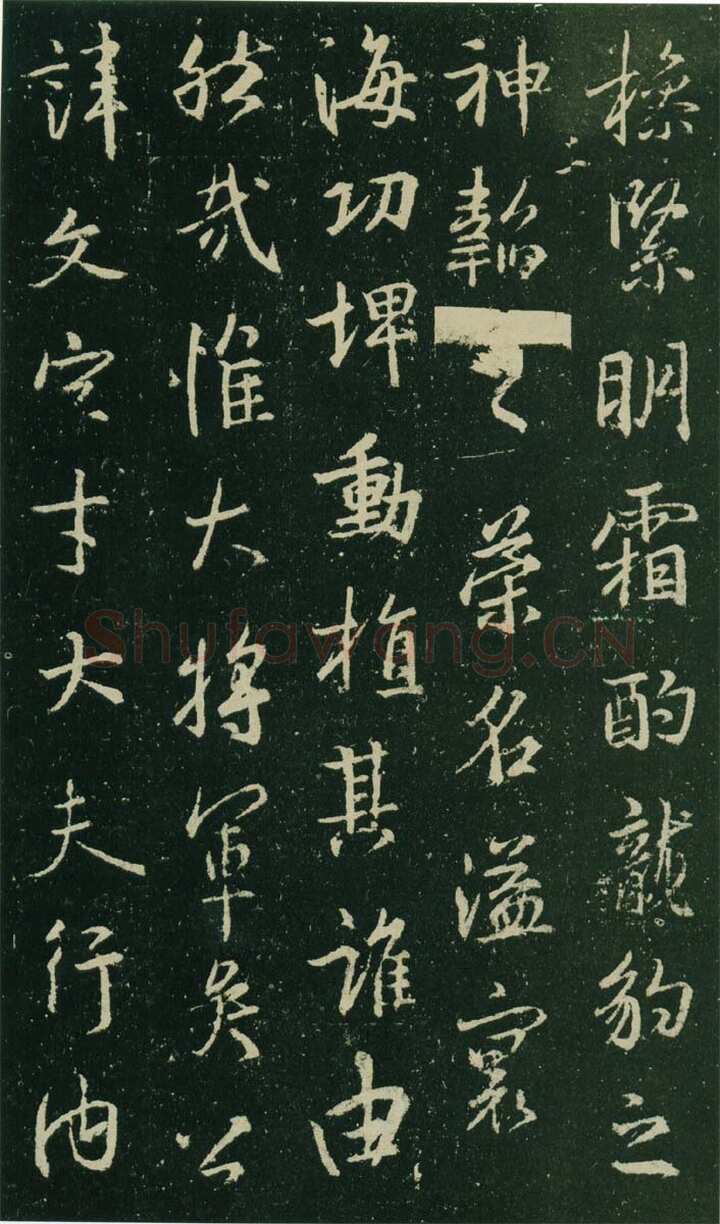 操緊明霜酌龍豹之
神榮名溢寰
海功埤動植其誰由
然哉惟大將軍吳公
諱文字才大夫行內
Shufawang.CN